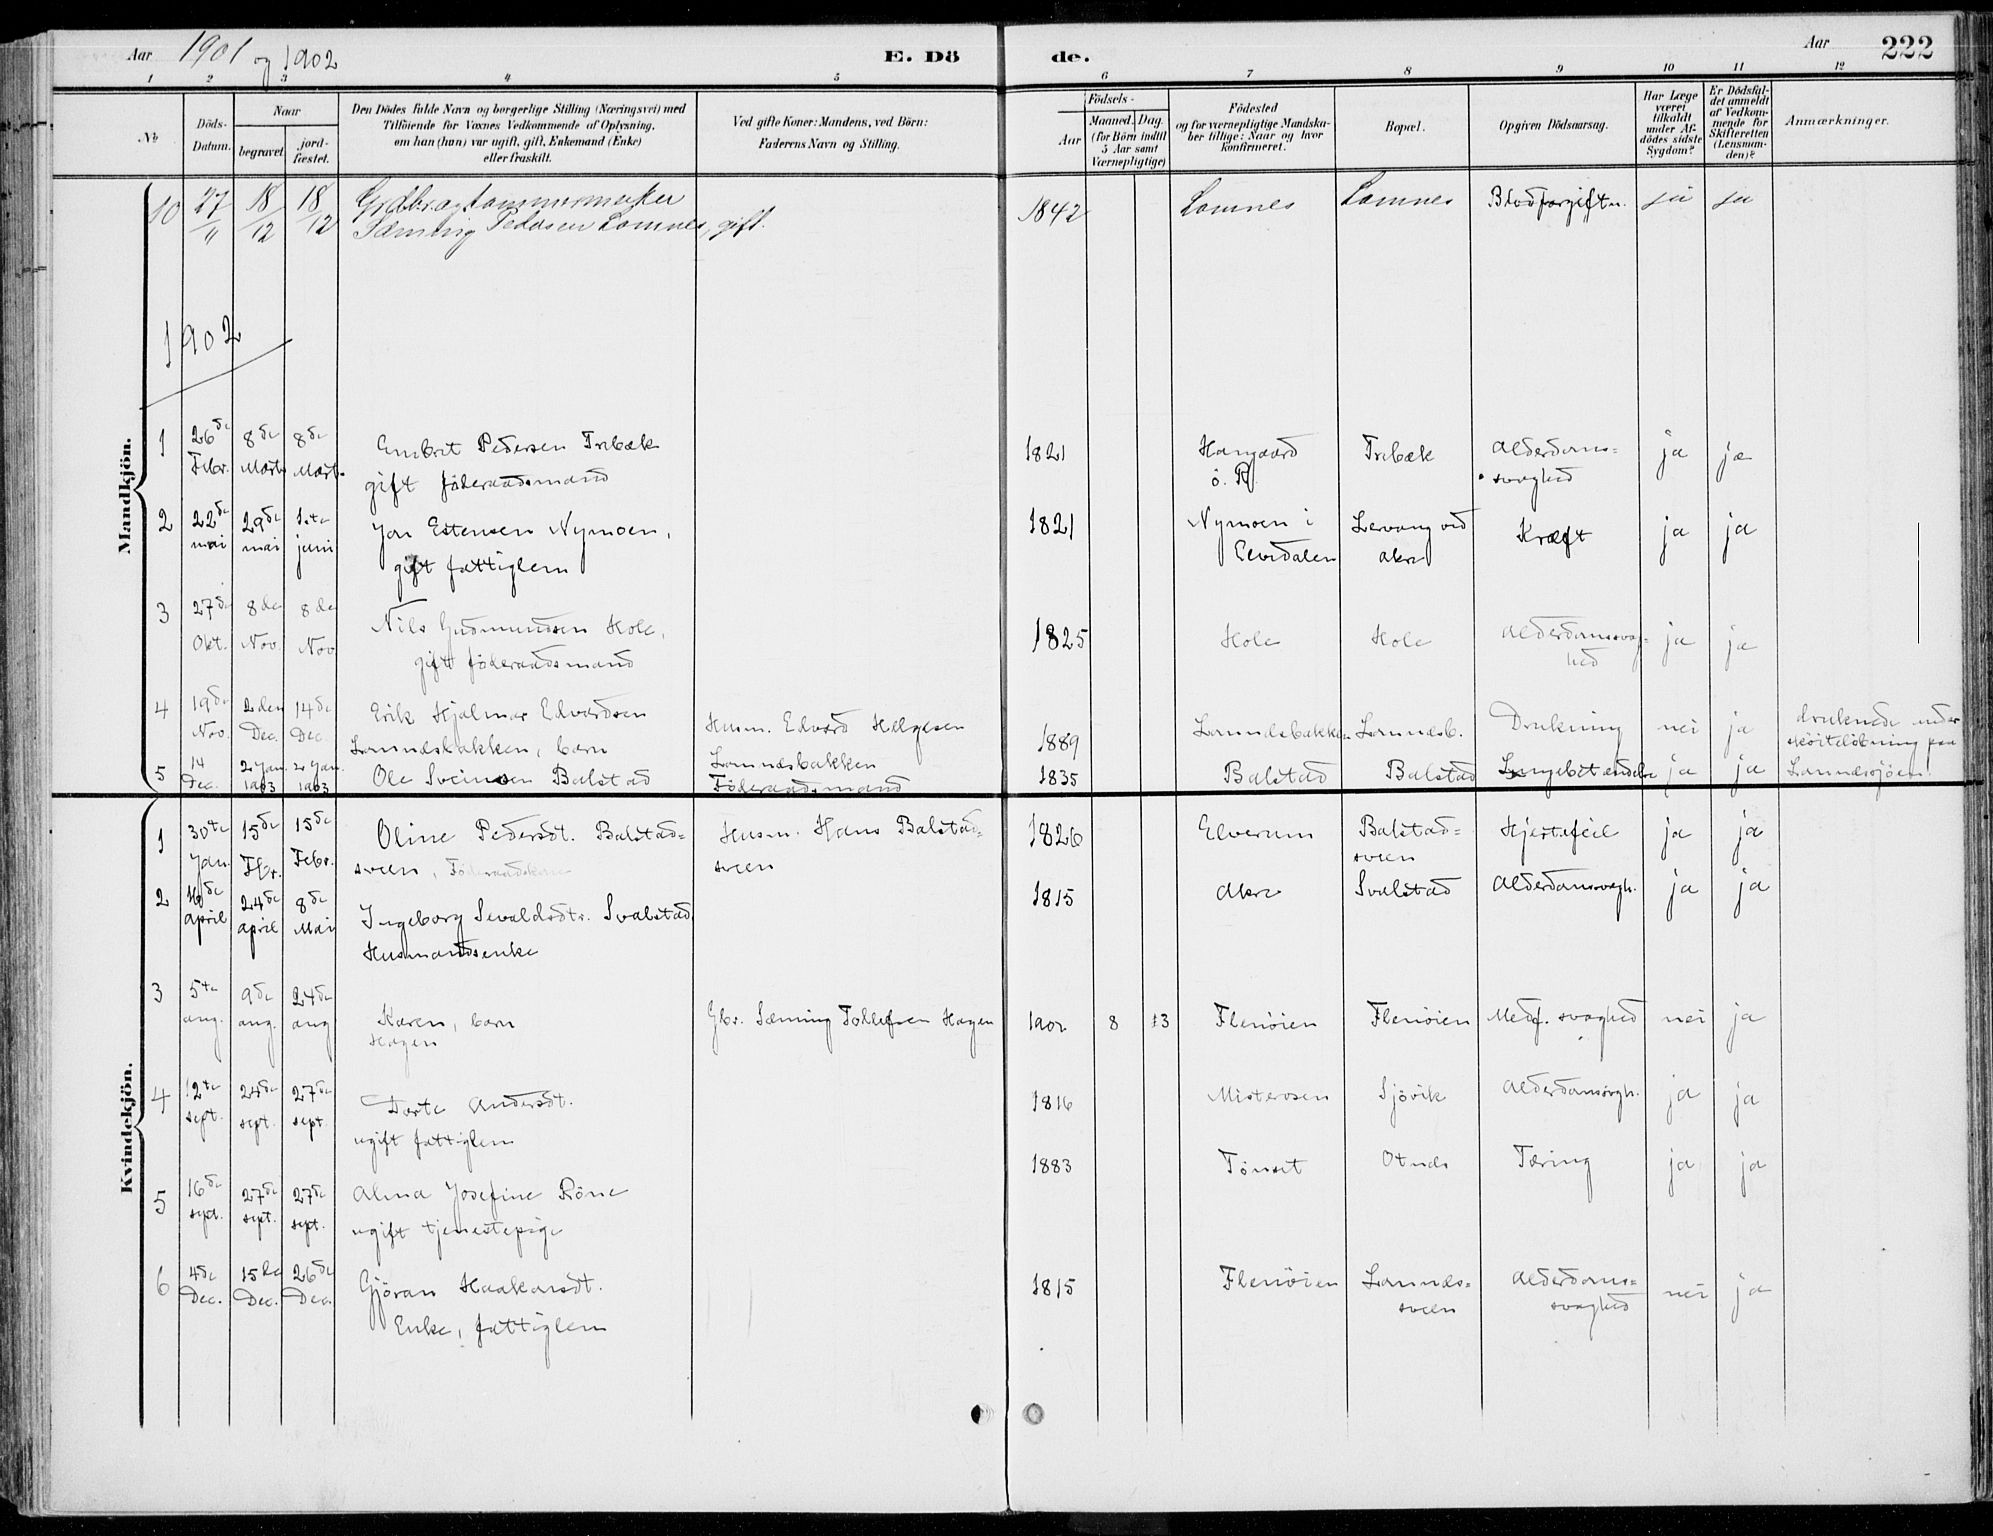 Aar 1901 og 1902 E. Dö de. Aar 222
1 2 3 4 5 6 7 8 9 10 11 12
No Döds-Datum. Naar begravet. jord-fæstet.
Den Dödes fulde Navn og borgerlige Stilling (Næringsvei) med
Tilföiende for Voxnes Vedkommende af Oplysning,
om han (hun) var ugift, gift, Enkemand (Enke)
eller fraskilt.
Ved gifte Koner: Mandens, ved Börn:
Faderens Navn og Stilling.
Födsels-
Aar Maaned. Dag.
(for Börn indtil
5 Aar samt
Værnepligtige)
Födested
og for værnepligtige Mandska-
ber tillige: Naar og hvor
konfirmeret.
Bopæl.
Opgiven Dödsaarsag.
Har Læge
været
tilkaldt
under Af-
dödes sidste
Sygdom?
Er Dödsfal-
det anmeldt
af Vedkom-
mende for
Skifteretten
(Lensman-
den)?
Anmærkninger.
Mandkjön.
10 27/11 18/12 18/12 Grdbr. og tømmermerker 1842 Lomnes Lomnes Blodforgiftn. ja ja
Sæming Pedersen Lomnes, gift.
1902
1 26de 8de 8de Embret Pedersen Trebæk 1821 Haugaard Trebæk Alderdoms= ja ja
Febr. Marts Marts. gift föderaadsmand ö. R. svaghed
2 22de 29de 1ste Jon Estensen Nymoen, 1821 Nymoen i Levang ved Kræft ja ja
mai mai juni gift fattiglem Elvedalen Akre
3 27de 8de 8de Nils Gudmundsen Hole, 1825 Hole Hole Alderdomssvag- ja ja
Okt. Nov. Nov gift föderaadsmand hed
4 19de 2den 14de Erik Hjalmar Edvardsen Husm. Edvard Helgesen 1889 Lomnæsbakken Lomnæsb. Drukning nei ja druknede under
Nov. Dec. Dec Lomnæsbakken, barn Lomnæsbakken sköitelöbning paa
5 14 2 Jan. 2 Jan. Ole Sveinsen Balstad Föderaadsmand 1835 Balstad Balstad Lungebetændelse ja ja Lomnæssjöen.
Dec. 1903 1903
Kvindekjön.
1 30te 15de 15de Oline Pedersdt. Balstad= Husm. Hans Balstad= 1826 Elverum Balstad= Hjertefeil ja ja
Jan. Febr. Febr. sveen, Föderaadskone sveen sveen
2 16de 24de 8de Ingeborg Sevaldsdtr. Svalstad 1815 Akre Svalstad Alderdomssvagh. ja ja
April April Mai Husmandsenke
3 5te 9de 24de Karen, barn Gbr. Sæming Tollefsen Hagen 1902 8 13 Flenöien Flenöien Medf. svaghed nei ja
aug. aug. aug Hagen
4 12te 24de 27de Dorte Andersdt. 1816 Misterosen Sjövik Alderdomssvgh. ja ja
sept. sept. sept. ugift fattiglem
5 16de 27de 27de Alma Josefine Röne 1883 Tönset Otnes Tæring ja ja
sept. sept. sept. ugift tjenestepige
6 4de 15de 26de Gjöran Haakonsdt. 1815 Flenöien Lomnæs= Alderdoms= nei ja
Dec. Dec. Dec. Enke, fattiglem sveen svaghed